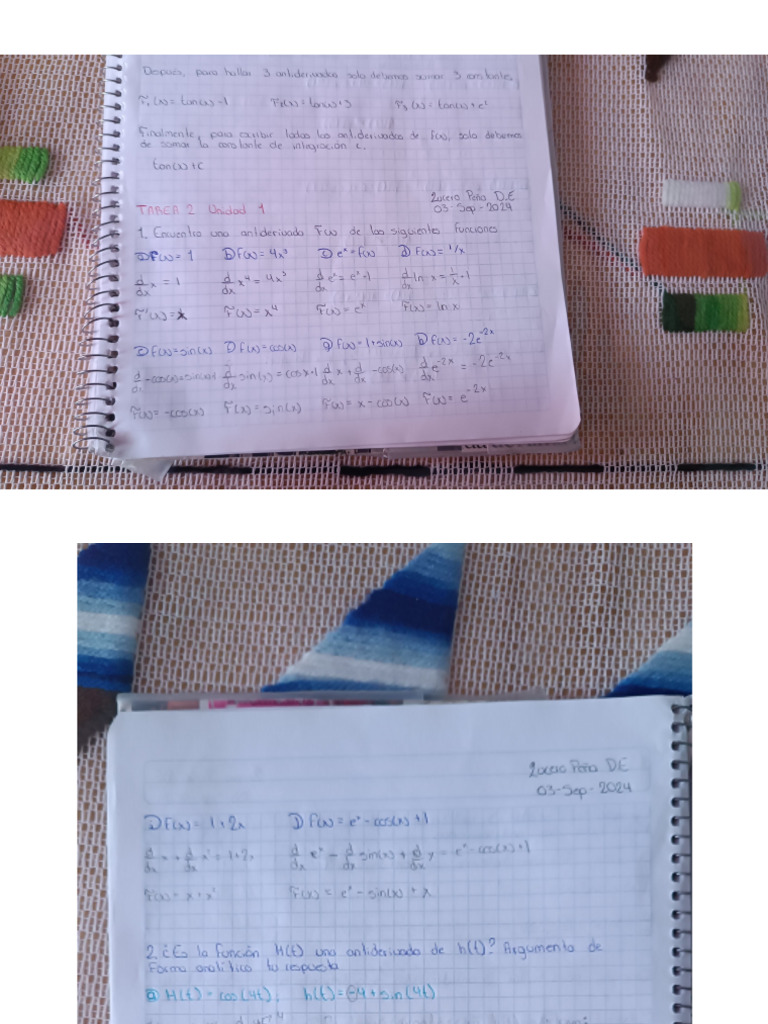 Después, para hallar 3 antiderivadas solo debemos sumar 3 constantes.
F₁(x) = tan(x) - 1 F₂(x) = tan(x) + 3 F₃(x) = tan(x) + e²
Finalmente, para escribir todas las antiderivadas de f(x), solo debemos
de sumar la constante de integración C.
tan(x) + C
Lucero Peña D.E
TAREA 2 Unidad 1 03-Sep-2024
1. Encuentra una antiderivada F(x) de las siguientes funciones
f(x) = 1 f(x) = 4x³ eˣ = f(x) f(x) = 1/x
d/dx x = 1 d/dx x⁴ = 4x³ d/dx eˣ = eˣ·1 d/dx ln x = 1/x·1
F(x) = x F(x) = x⁴ F(x) = eˣ F(x) = ln x
f(x) = sin(x) f(x) = cos(x) f(x) = 1 + sin(x) f(x) = -2e⁻²ˣ
d/dx -cos(x) = sin(x)·1 d/dx sin(x) = cos x·1 d/dx x + d/dx -cos(x) d/dx e⁻²ˣ = -2e⁻²ˣ
F(x) = -cos(x) F(x) = sin(x) F(x) = x - cos(x) F(x) = e⁻²ˣ
Lucero Peña D.E
03-Sep-2024
f(x) = 1 + 2x f(x) = eˣ - cos(x) + 1
d/dx x + d/dx x² = 1 + 2x d/dx eˣ - d/dx sin(x) + d/dx x = eˣ - cos(x) + 1
F(x) = x + x² F(x) = eˣ - sin(x) + x
2. ¿Es la función H(t) una antiderivada de h(t)? Argumenta de
forma analítica tu respuesta
a) H(t) = cos(4t); h(t) = -4 * sin(4t)